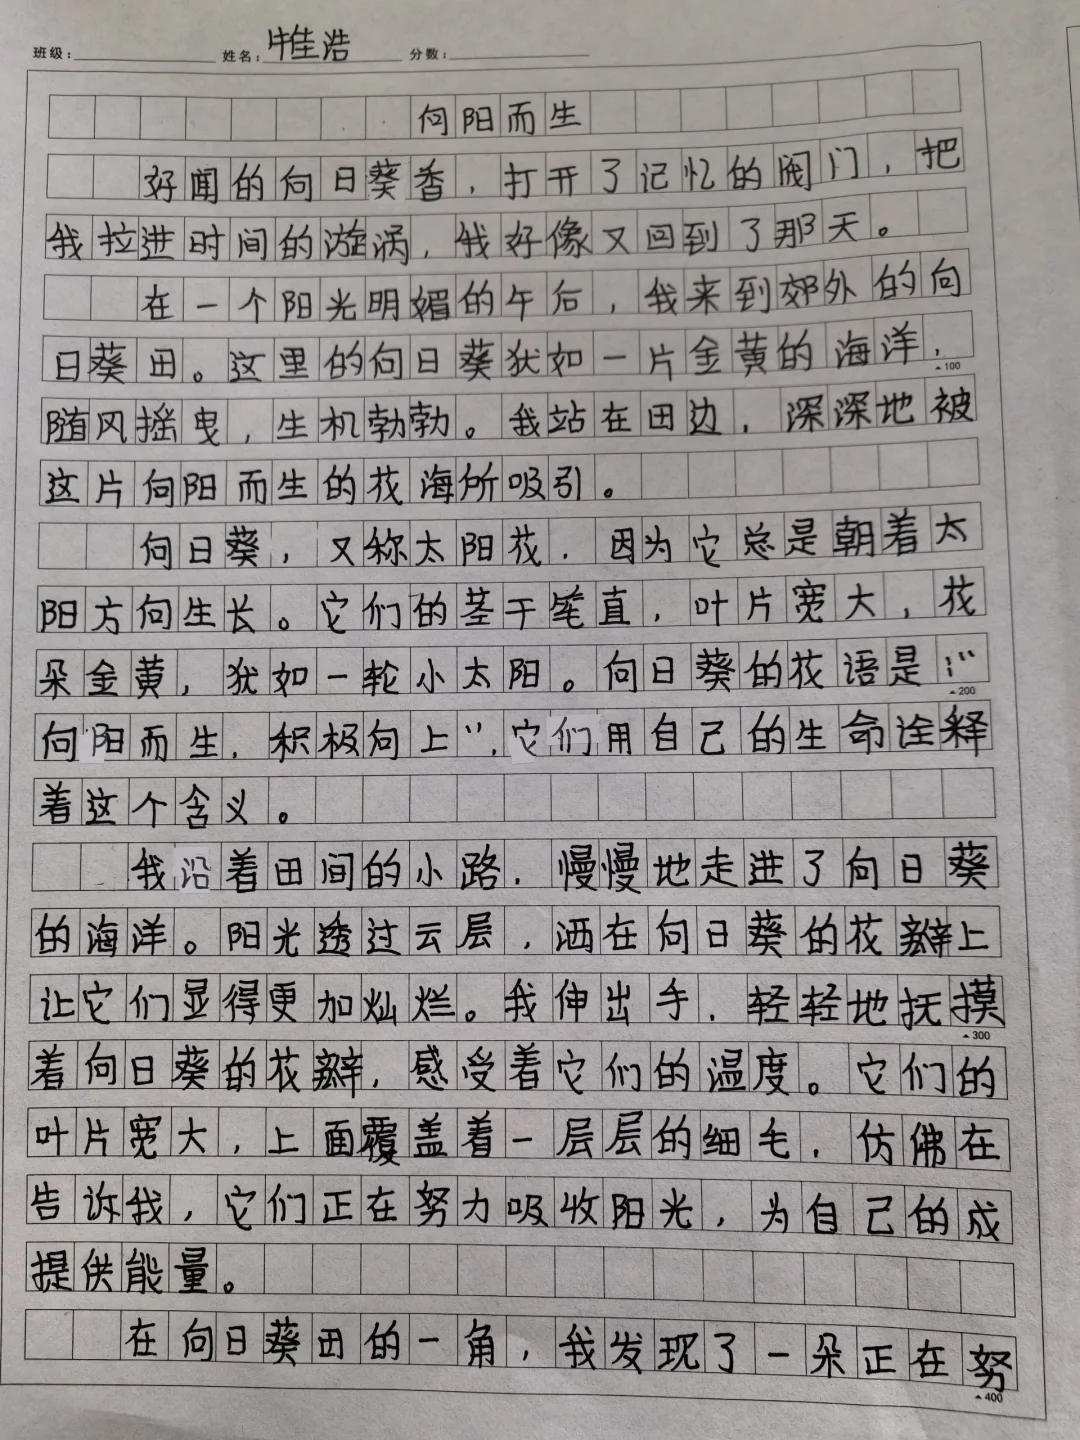 班级: 姓名:牛佳浩 分数:
向阳而生
好闻的向日葵香，打开了记忆的阀门，把
我拉进时间的漩涡，我好像又回到了那天。
在一个阳光明媚的午后，我来到郊外的向
日葵田。这里的向日葵犹如一片金黄的海洋，
100
随风摇曳，生机勃勃。我站在田边，深深地被
这片向阳而生的花海所吸引。
向日葵，又称太阳花，因为它总是朝着太
阳方向生长。它们的茎干笔直，叶片宽大，花
朵金黄，犹如一轮小太阳。向日葵的花语是:“
200
向阳而生，积极向上”，它们用自己的生命诠释
着这个含义。
我沿着田间的小路，慢慢地走进了向日葵
的海洋。阳光透过云层，洒在向日葵的花瓣上
让它们显得更加灿烂。我伸出手，轻轻地抚摸
300
着向日葵的花瓣，感受着它们的温度。它们的
叶片宽大，上面覆盖着一层层的细毛，仿佛在
告诉我，它们正在努力吸收阳光，为自己的成
提供能量。
在向日葵田的一角，我发现了一朵正在努
400